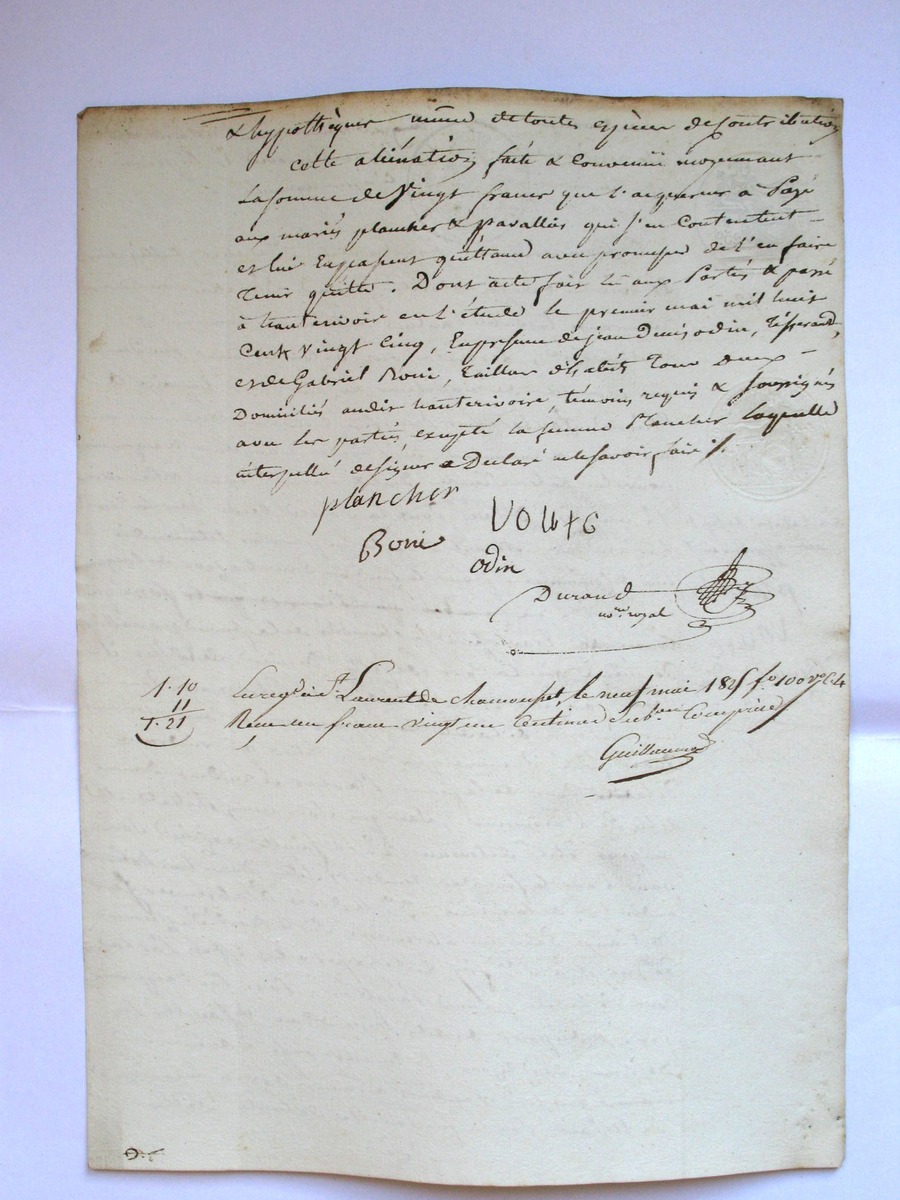 & hypothèques même de toutes espèces de Contribution
cette aliénation faite & Convenüe moyennant
La somme de Vingt francs que l'acquéreur a Payé
aux mariés plancher & pavallier qui s'en Contentent
et lui En passent quittance avec promesse de l'en faire
Tenir quitte. Dont acte fait lû aux Parties & passé
à hauterivoire en l'étude le premier mai mil huit
Cent Vingt Cinq, En présence de jean Denis odin,
et de Gabriel Boni, Tailleur d'habits Tous Deux
Domiciliés audit hauterivoire témoins requis & soussignés
avec les parties, excepté la femme Plancher laquelle
interpellée de signer a Declaré ne le savoir faire ./.
plancher
Boni
odin
Durand
no.re royal
1.10
11
1.21
Enreg.é à S.t Laurent de chamousset, le neuf mai 1825 f.o 100 v.o C.4
Reçu un franc vingt un Centimes Sub.on Comprise
Guillaumod